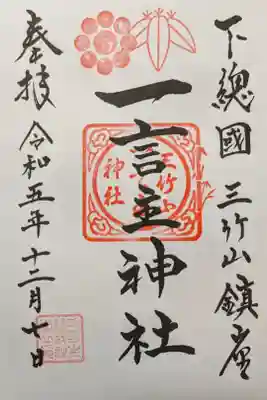 下總國 三竹山鎮座
一言主神社
三竹山
神社
奉拝
令和五年十二月七日